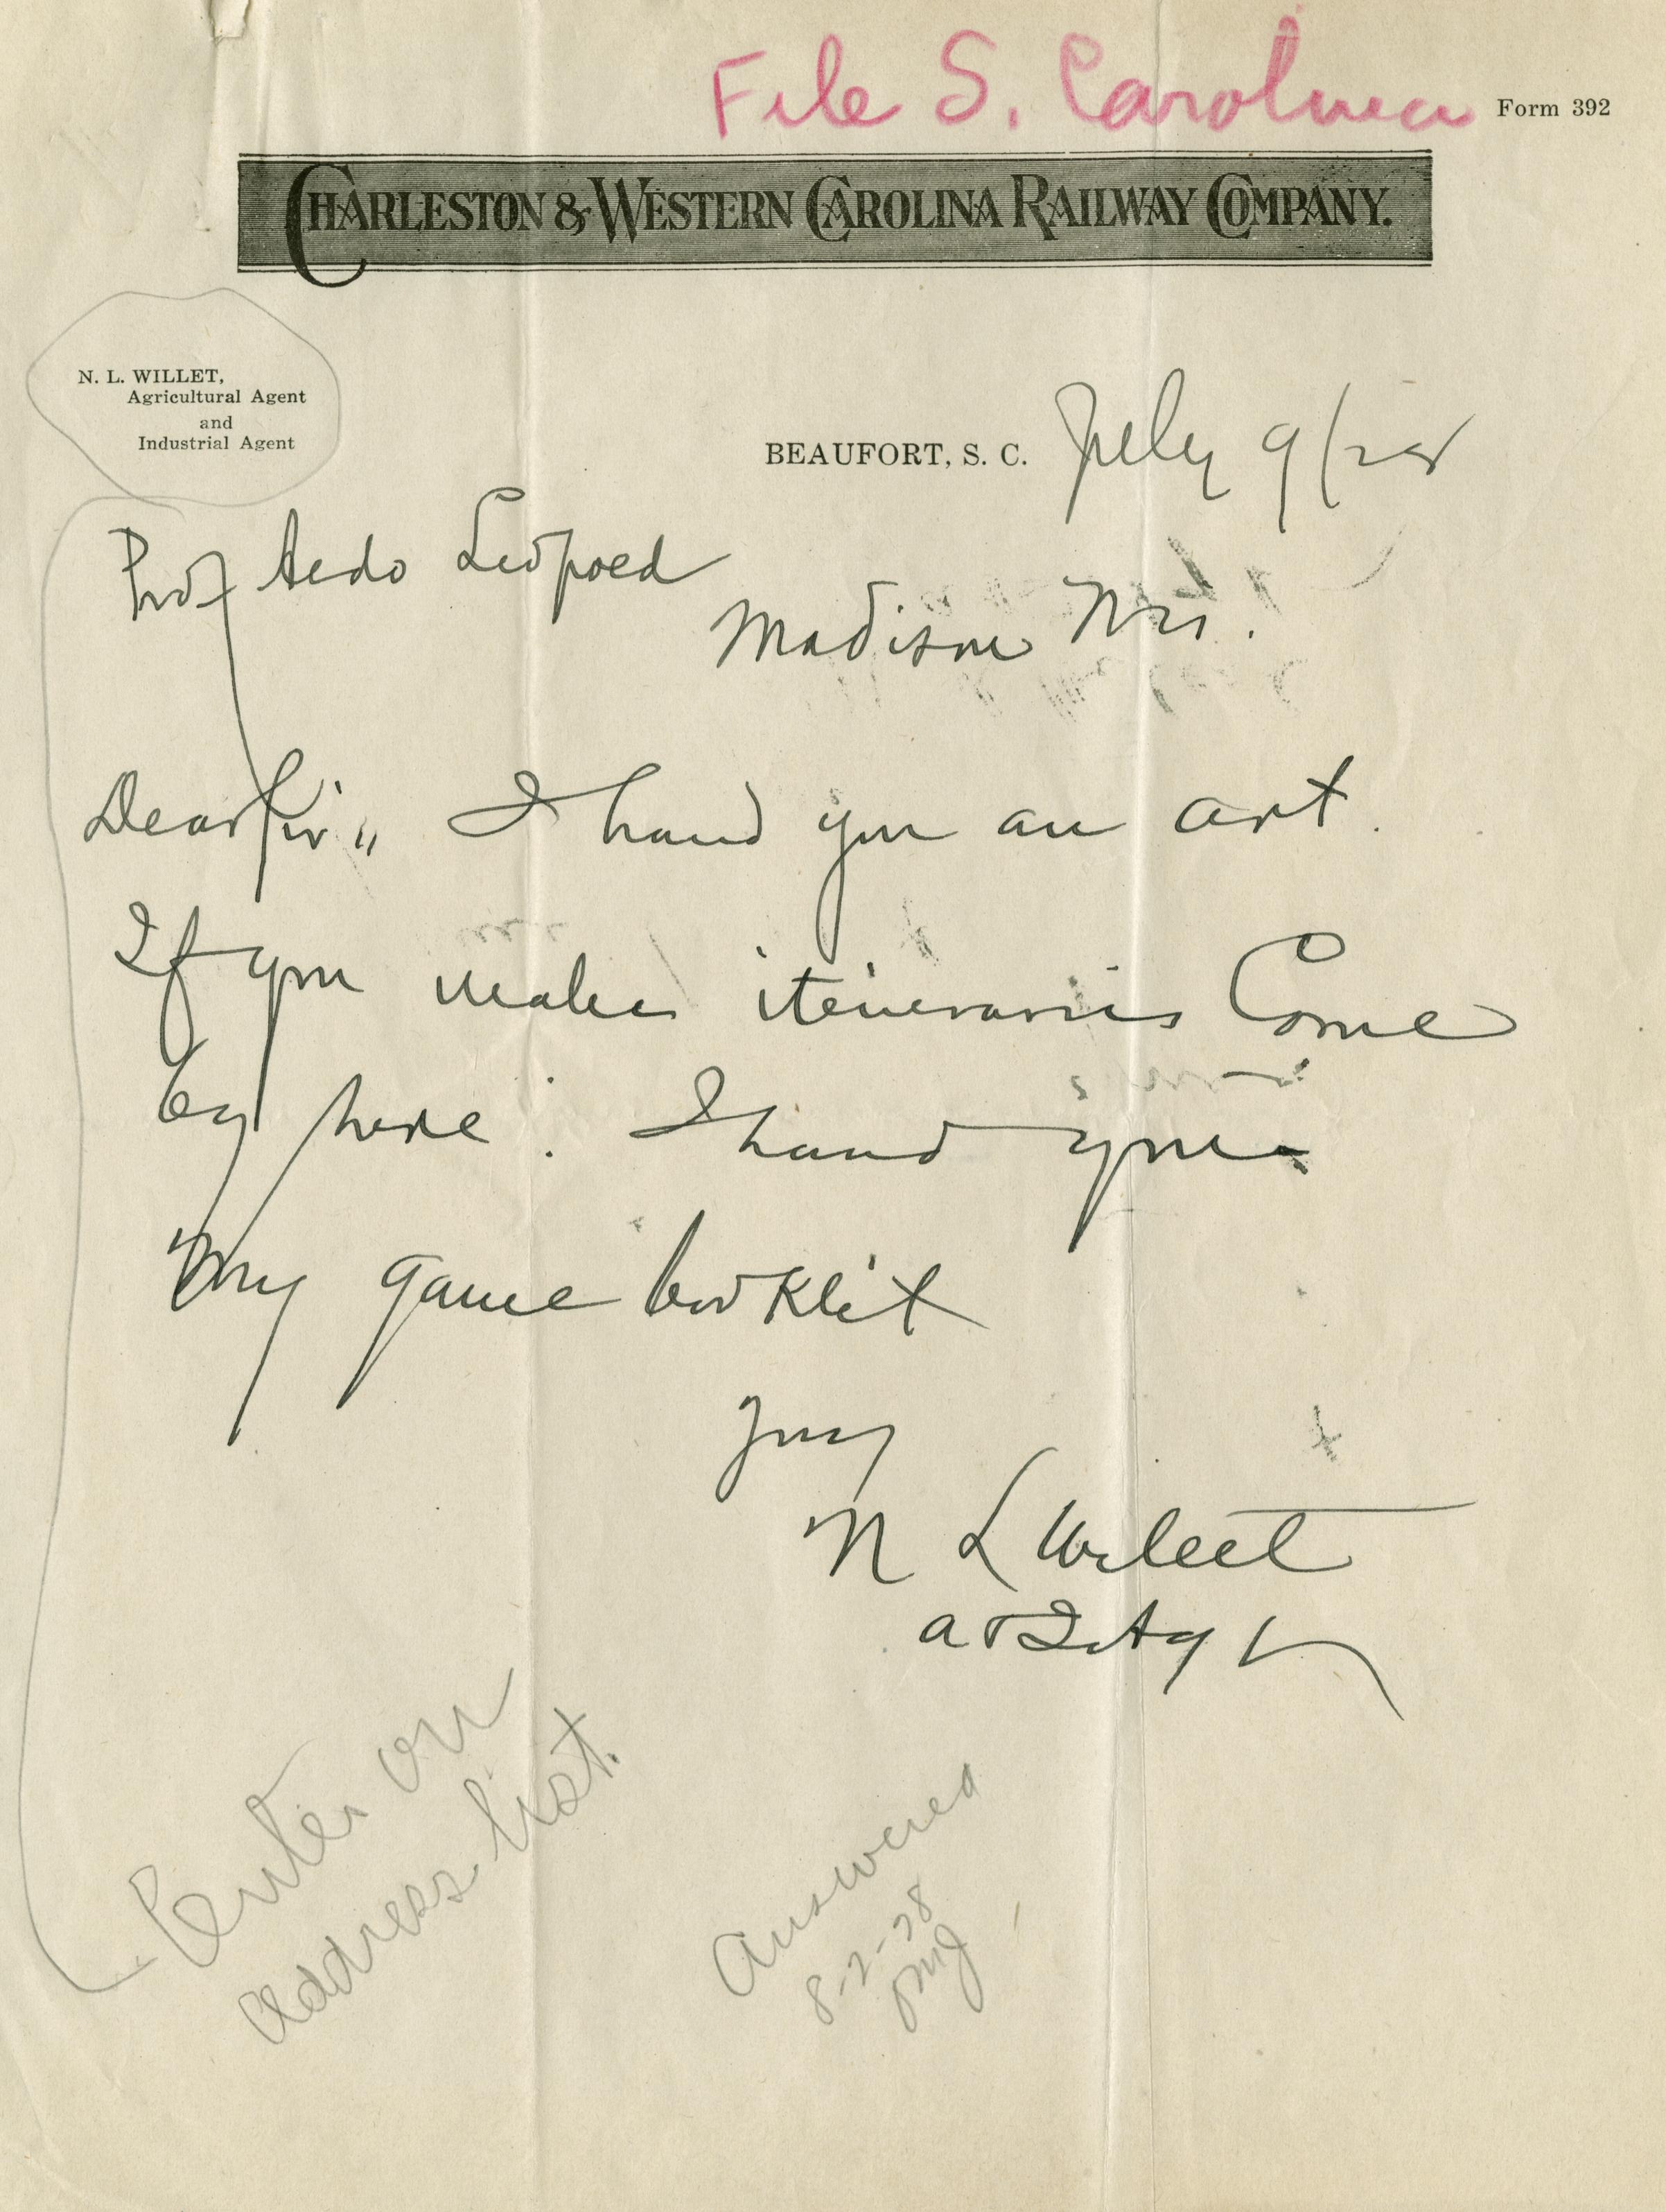 File S. Carolina
Form 392
CHARLESTON & WESTERN CAROLINA RAILWAY COMPANY.
N. L. WILLET,
Agricultural Agent
and
Industrial Agent
BEAUFORT, S. C. July 9/28
Prof Aldo Leopold
Madison Wis.
Dear Sir" I hand you an art.
If you make itineraries Come
by here. I hand you
my game booklet
Yours
N L Willet
Enter on
address list.
Answered
8-2-28